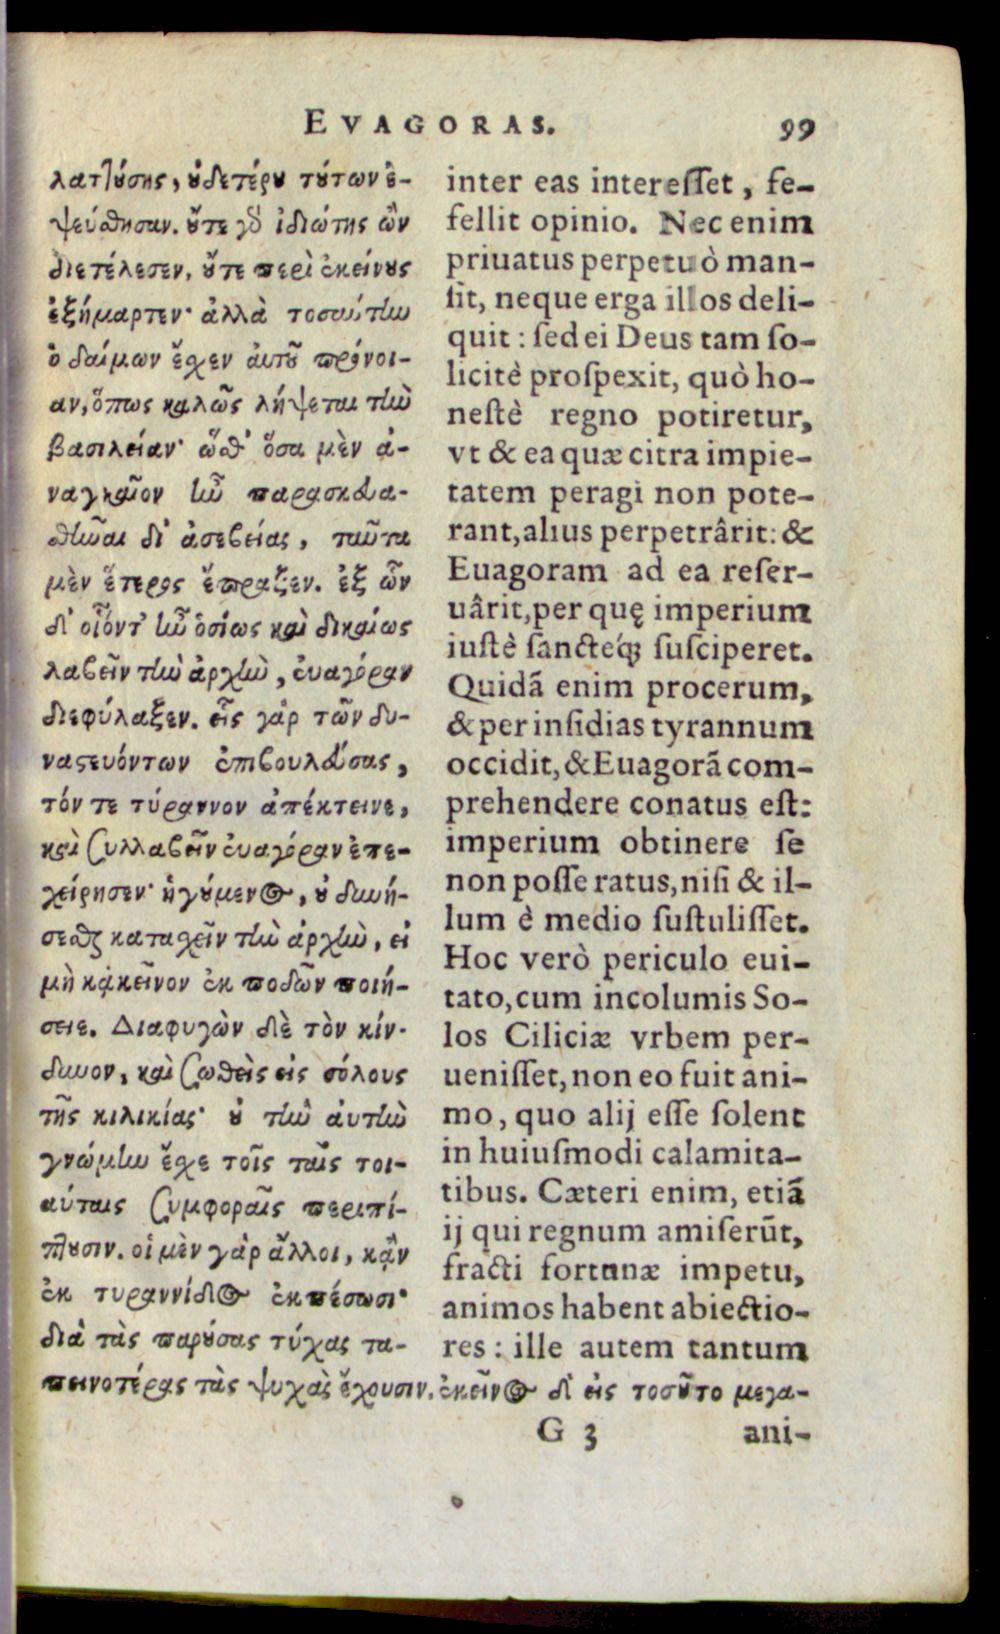 EVAGORAS. 99
λαττούσης, οὐδετέρου τούτων ἐ-
ψεύσθησαν. οὔτε γὰρ ἰδιώτης ὢν
διετέλεσεν, οὔτε περὶ ἐκείνους
ἐξήμαρτεν· ἀλλὰ τοσαύτην
ὁ δαίμων ἔσχεν αὐτοῦ πρόνοι-
αν, ὅπως καλῶς λήψεται τὴν
βασιλείαν· ὥσθ' ὅσα μὲν ἀ-
ναγκαῖον ἦν παρασκευα-
σθῆναι δι' ἀσεβείας, ταῦτα
μὲν ἕτερος ἔπραξεν. ἐξ ὧν
δ' οἷόντ' ἦν ὁσίως καὶ δικαίως
λαβεῖν τὴν ἀρχὴν, εὐαγόραν
διεφύλαξεν. εἷς γὰρ τῶν δυ-
ναστευόντων ἐπιβουλεύσας,
τόν τε τύραννον ἀπέκτεινε,
καὶ συλλαβεῖν εὐαγόραν ἐπε-
χείρησεν· ἡγούμενος, οὐ δυνή-
σεσθαι κατασχεῖν τὴν ἀρχὴν, εἰ
μὴ κἀκεῖνον ἐκ ποδῶν ποιή-
σειε. Διαφυγὼν δὲ τὸν κίν-
δυνον, καὶ σωθεὶς εἰς σόλους
τῆς κιλικίας· οὐ τὴν αὐτὴν
γνώμην ἔσχε τοῖς ταῖς τοι-
αύταις συμφοραῖς περιπί-
πτουσιν. οἱ μὲν γὰρ ἄλλοι, κἂν
ἐκ τυραννίδος ἐκπέσωσι·
διὰ τὰς παρούσας τύχας τα-
πεινοτέρας τὰς ψυχὰς ἔχουσιν. ἐκεῖνος δ' εἰς τοσοῦτο μεγα-
inter eas interesset, fe-
fellit opinio. Nec enim
priuatus perpetuò man-
sit, neque erga illos deli-
quit: sed ei Deus tam so-
licitè prospexit, quò ho-
nestè regno potiretur,
vt & ea quæ citra impie-
tatem peragi non pote-
rant, alius perpetrârit: &
Euagoram ad ea reser-
uârit, per quę imperium
iustè sanctéq; susciperet.
Quidã enim procerum,
& per insidias tyrannum
occidit, & Euagorã com-
prehendere conatus est:
imperium obtinere se
non posse ratus, nisi & il-
lum è medio sustulisset.
Hoc verò periculo eui-
tato, cum incolumis So-
los Ciliciæ vrbem per-
uenisset, non eo fuit ani-
mo, quo alij esse solent
in huiusmodi calamita-
tibus. Cæteri enim, etiã
ij qui regnum amiserũt,
fracti fortunæ impetu,
animos habent abiectio-
res: ille autem tantum
G 3 ani-